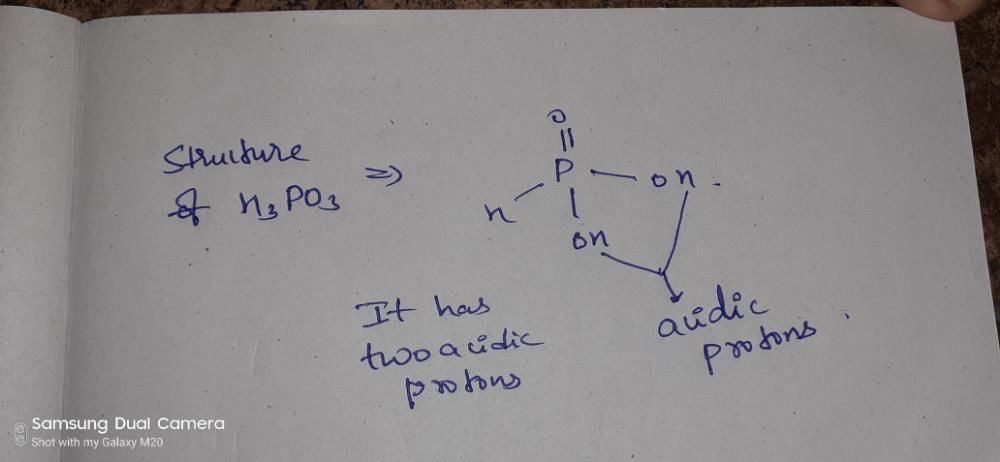 Structure
of H3PO3 ⇒
O
||
P — OH.
H
OH
It has
two acidic
protons
acidic
protons.
Samsung Dual Camera
Shot with my Galaxy M20